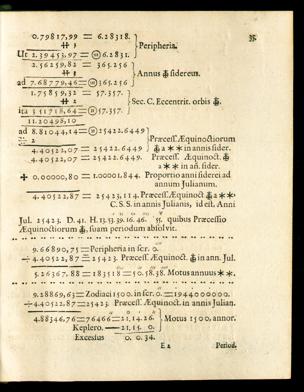 0.79817,99 = 6.28318.
Ut 2.39453,97 = 6.2831. Peripheria.
2.56259,82 = 365.256
Annus ♁ sidereus.
ad 7.68779,46 = 365.256
1.75859,32 = 57.357.
Sec. C. Eccentrit. orbis ♁.
ita 3.51718,64 = 57.357.
11.20498,10
ad 8.81044,14 = 25422.6449
4.40522,07 = 25422.6449. Præcess. Æquinoctiorum
♁ a ** in annis sider.
4.40522,07 = 25422.6449. Præcess. Æquinoct. ♁
a ** in an. sider.
+ 0.00000,80 = 1.0001.844. Proportio anni siderei ad
annum Julianum.
4.40522,87 = 25423,114. Præcess. Æquinoct ♁ a **
C. S. S. in annis Julianis, id est. Anni
Jul. 25423. D. 41. H. 13. 53. 39. 16. 46. 55. quibus Præcessio
Æquinoctiorum ♁, suam periodum absolvit.
9.66890,75 = Peripheria in scr. 0.
÷ 4.40522,87 = 25423. Præcess. Æquinoct. ♁ in ann. Jul.
5.26367.88 = 183518 = 50.58.38. Motus annuus **.
9.28869,63 = Zodiaci 1500. in scr. 0. = 1944000000.
÷ 4.40522.87 = 25423. Præcess. Æquinoct. in annis Julian.
4.88346,76 = 76466 = 21.14.26. Motus 1500. annor.
Keplero. — 21.15. 0.
Excessus 0. 0.34.
E 2 Period.